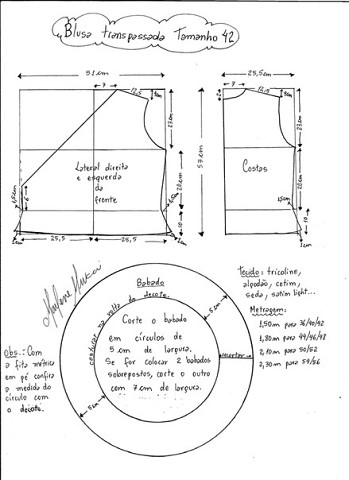 Blusa transpassada Tamanho 42
51 cm
25,5 cm
7
12,5
7
12,5
23 cm
23 cm
57 cm
Lateral direita
e esquerda
da
frente
Costas
20 cm
20 cm
6
10
10
25,5
25,5
1cm
Babado
costurar na volta do decote.
Corte o babado
em círculos de
5 cm de largura.
Se for colocar 2 babados
sobrepostos, corte o outro
com 7 cm de largura.
5 cm
5 cm
Tecido: tricoline,
algodão, cetim,
seda, satim light...
Metragem:
1,50 m para 36/40/42
1,80 m para 44/46/48
2,10 m para 50/52
2,30 m para 54/56
Obs.: Com
a fita métrica
em pé confira
a medida do
círculo com
o decote.